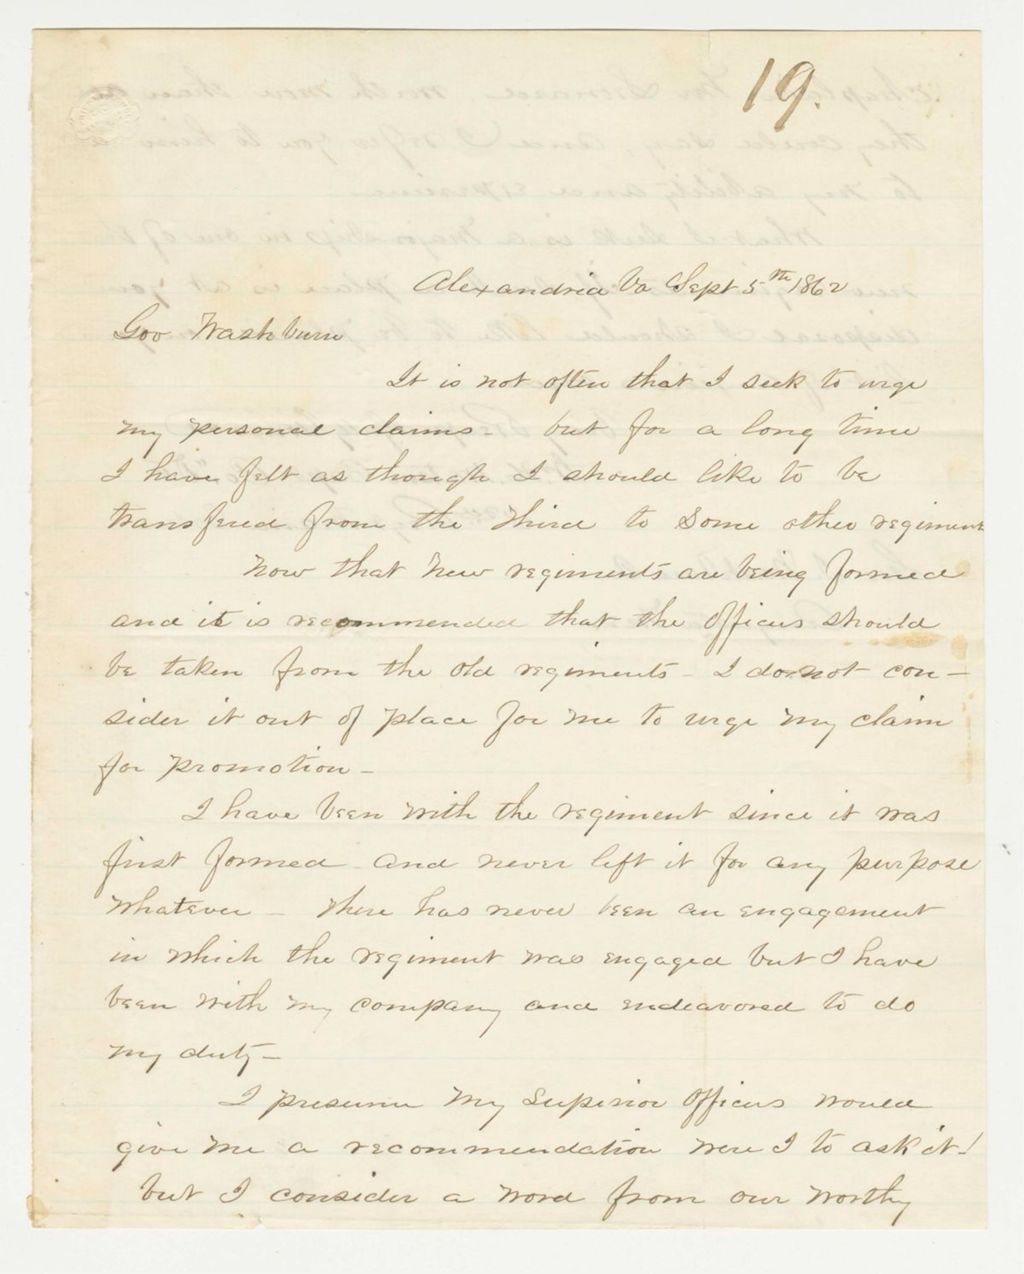 19.
Alexandria Va Sept 5th 1862
Gov Washburn
It is not often that I seek to urge
my personal claims - but for a long time
I have felt as though I should like to be
transfered from the Third to some other regiment
Now that new regiments are being formed
and it is recommended that the officers should
be taken from the old regiments - I do not con-
sider it out of place for me to urge my claim
for promotion -
I have been with the regiment since it was
first formed and never left it for any purpose
whatever - there has never been an engagement
in which the regiment was engaged but I have
been with my company and endeavored to do
my duty -
I presume my superior officers would
give me a recommendation were I to ask it!
but I consider a word from our worthy